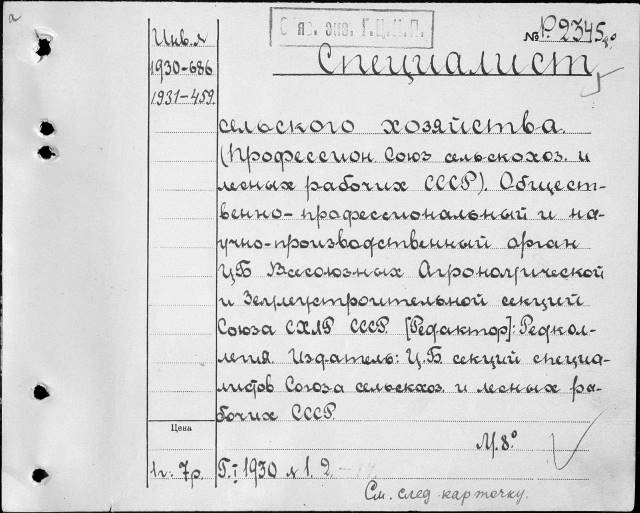 а
Обяз. экз. Г.Ц.К.П.
№ Р. 2345 8°
Инв. №
1930-686
1931-459.
Специалист
сельского хозяйства.
(Професcион. Союз сельскохоз. и
лесных рабочих СССР). Общест-
венно-профессиональный и на-
учно-производственный орган
ЦБ Всесоюзных Агрономической
и Землеустроительной секций
Союза СХЛР СССР. [Редактор]: Редкол-
легия. Издатель: Ц.Б. секций специа-
листов Союза сельскхоз. и лесных ра-
бочих СССР.
Цена
М. 8°
1 г. 7р.
Г. I 1930 № 1. 2.
См. след карточку.